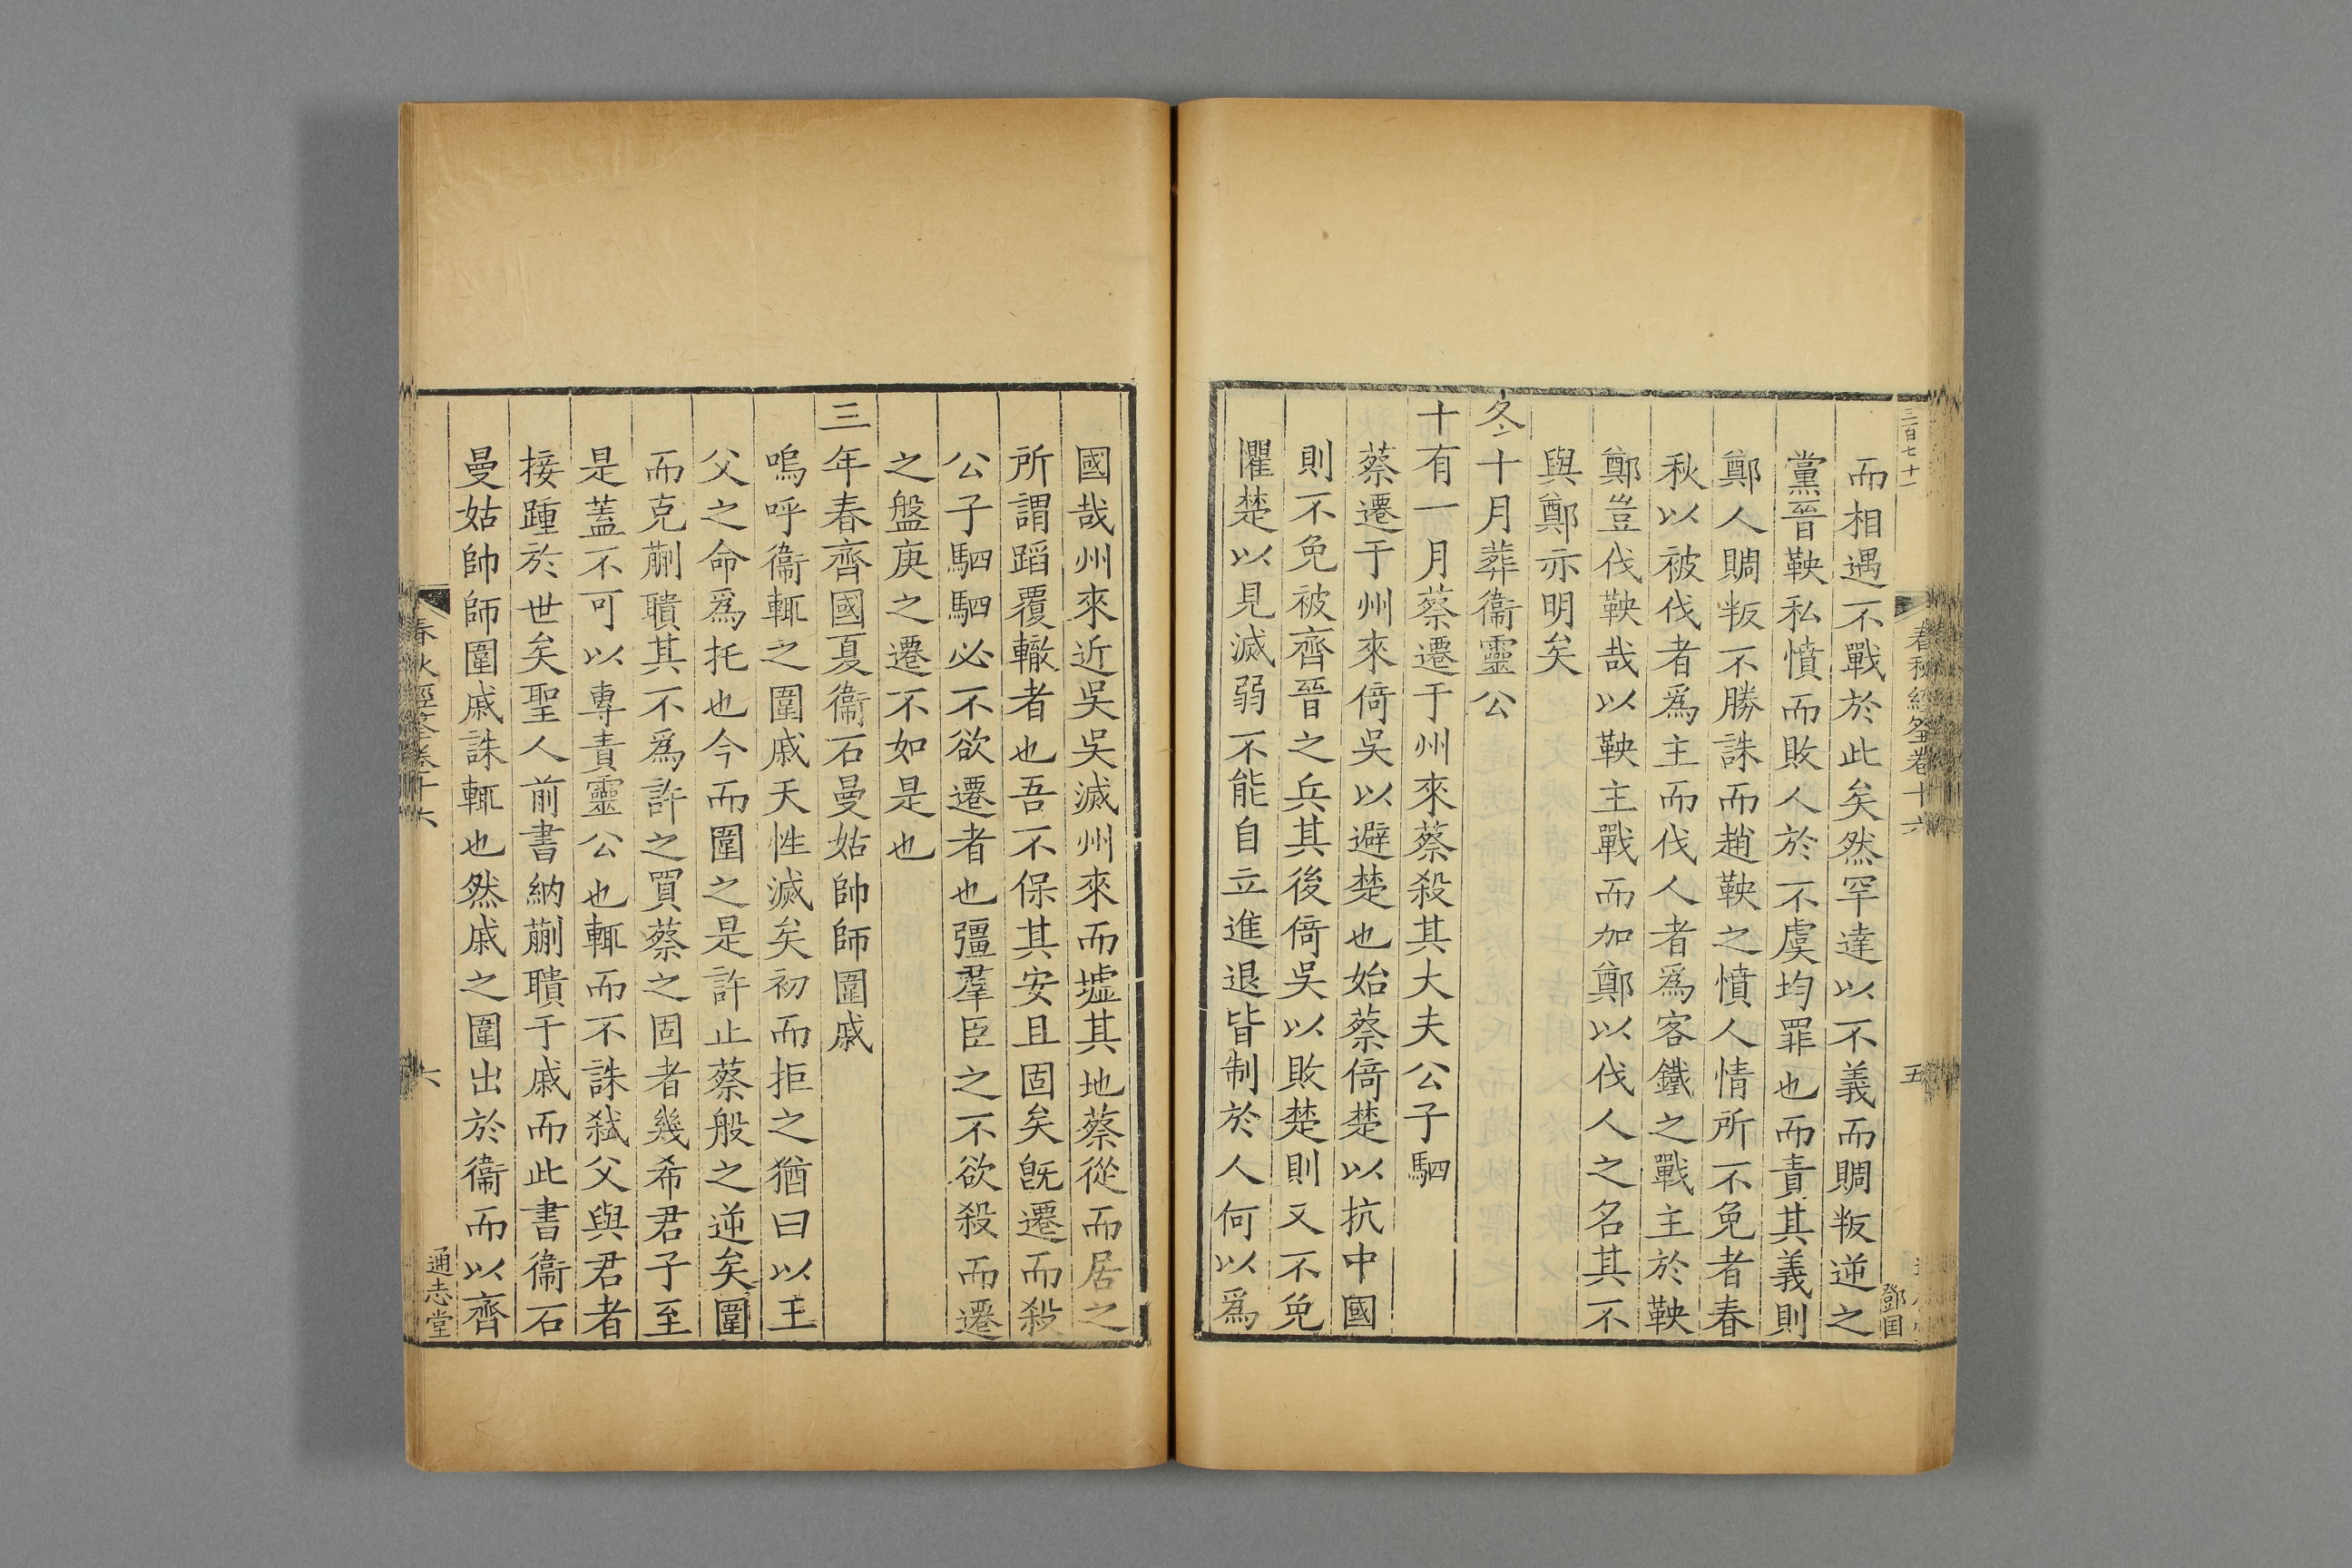 三百七十一
春秋經筌卷十六
五
鄧国
而相遇不戰於此矣然罕達以不義而賙叛逆之
黨晉鞅私憤而敗人於不虞均罪也而責其義則
鄭人賙叛不勝誅而趙鞅之憤人情所不免者春
秋以被伐者爲主而伐人者爲客鐵之戰主於鞅
鄭豈伐鞅哉以鞅主戰而加鄭以伐人之名其不
與鄭亦明矣
冬十月葬衞靈公
十有一月蔡遷于州來蔡殺其大夫公子駟
蔡遷于州來倚吳以避楚也始蔡倚楚以抗中國
則不免被齊晉之兵其後倚吳以敗楚則又不免
懼楚以見滅弱不能自立進退皆制於人何以爲
國哉州來近吳吳滅州來而墟其地蔡從而居之
所謂蹈覆轍者也吾不保其安且固矣旣遷而殺
公子駟駟必不欲遷者也彊羣臣之不欲殺而遷
之盤庚之遷不如是也
三年春齊國夏衞石曼姑帥師圍戚
嗚呼衞輒之圍戚天性滅矣初而拒之猶曰以王
父之命爲托也今而圍之是許止蔡般之逆矣圍
而克蒯聵其不爲許之買蔡之固者幾希君子至
是蓋不可以專責靈公也輒而不誅弑父與君者
接踵於世矣聖人前書納蒯聵于戚而此書衞石
曼姑帥師圍戚誅輒也然戚之圍出於衞而以齊
春秋經筌卷十六
六
通志堂